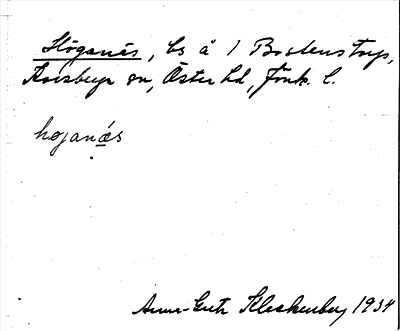 Höganäs, ls å 1 Bostenstorp,
Korsberga sn, Östra hd, Jönk. l.
højanǽs
Anna-Greta Kleckenberg 1934